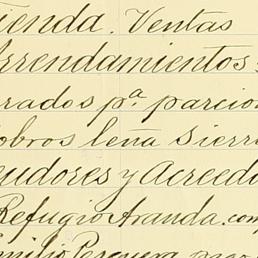 Tienda. Ventas
Arrendamientos
rados pª parcio
obros leña Sierra
eudores y Acreedo
Refugio Aranda. com
milio